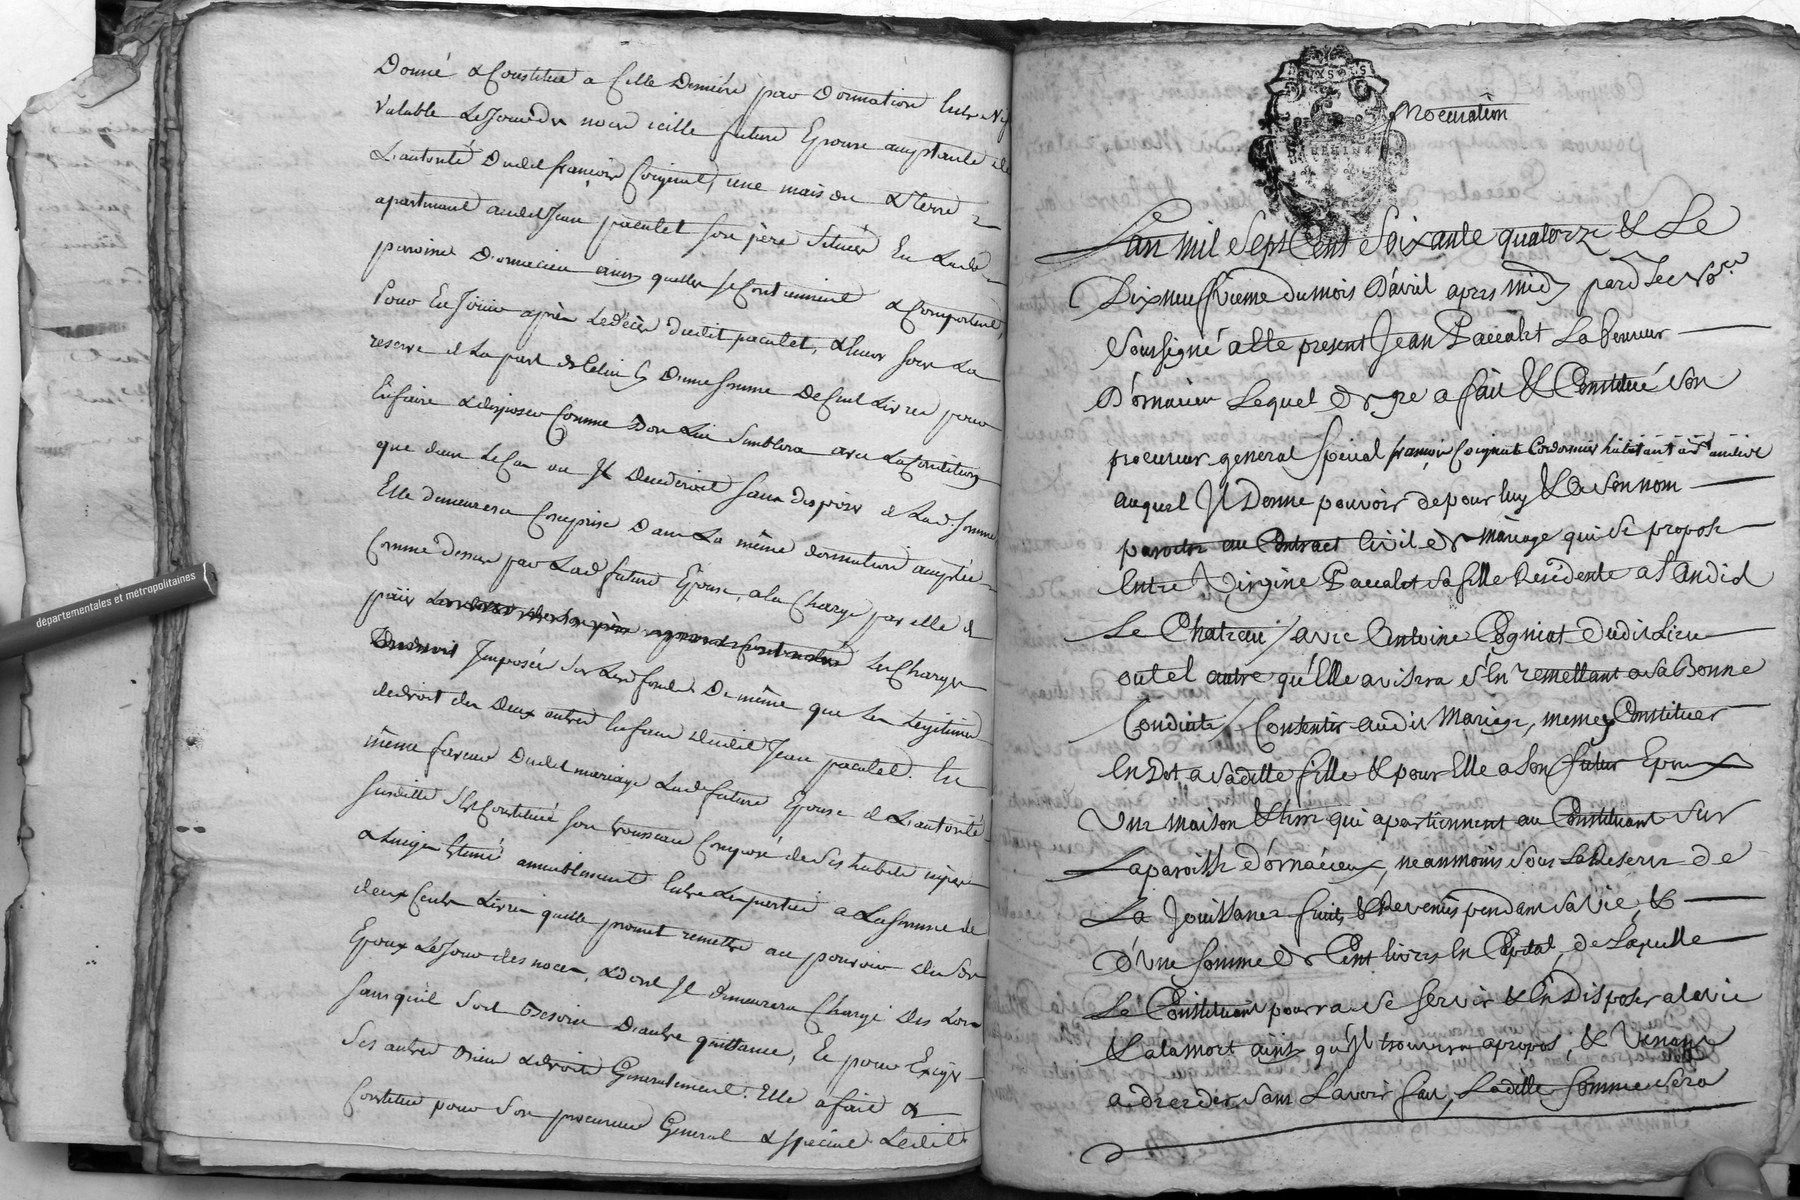 Donné & Constitué a Celle Derniére par Donnation Entre Vif
Valable Le Jour de noces icelle future Epouse acceptante de
L'autorité dudit françois Coignat, une maison & terre
apartenant audit Jean pacalet son père Situés En Ladte
paroisse D'ornacieu ainsy quelles se Contiennent & Comportent,
Pour En Jouir après Le décès dudit pacalet, & sous La
reserve de La part de Celui cy D'une somme De Cent Livres pour
En faire & disposer Comme Bon Lui Semblera avec La Condition
que dans Le Cas ou Il Decederoit sans disposer de Lad. somme
Elle demeurera Comprise Dans La même donnation acceptée
Comme dessus par Lad future Epouse, a la Charge par elle de
païer Les Charges
Imposées sur Lesd fonds De même que Les Legitimes
de droit des Deux autres Enfans dudit Jean pacalet. En
même faveur Dudit mariage Lade future Epouse de L'autorité
susditte S'est Constitué son trousseau Composé de Ses habits nipes
& Linges Estimé amiablement Entre Les parties a La somme de
deux Cents Livres quelle promet remettre au pouvoir du Sr
Epoux Le Jour des noces, & dont Il demeurera Chargé Dès Lors
sans quil Soit Besoin D'autre quittance, Et pour Exiger
Ses autres Biens & droits Generalement. Elle a fait &
Constitué pour Son procureur General & special Ledit
DEUX SOLS
Procuration
Lan mil Sept Cent Soixante quatorze & Le
Dixneufvieme du mois D'avril apres midy pard Le Nore
Soussigné a Ete present Jean Paccalet Laboureur
D'ornacieu Lequel de gre a fait & Constitué Son
procureur general special françois Coignat Cordonnier habitant
auquel Il Donne pouvoir de pour luy & En Son nom
paroitre au Contract Civil de mariage qui Se propose
Entre Virgine Paccalet Sa fille Residente a St Andié
Le Chateau / avec Antoine Cogniat dudit Lieu
ou tel autre qu'Elle avisera S'En remettant a Sa Bonne
Conduite / Consentir audit Mariage, meme Constituer
En Dot a Sa ditte fille & pour Elle a Son futur Epoux
Une maison & terre qui apartiennent au Constituant Sur
La paroisse d'ornacieux, neanmoins Sous La Reserve de
La Jouissance fruits & Revenus pendant Sa Vie, &
D'Une Somme de Cent livres En Capital, de Laquelle
Le Constituant pourra Se Servir & En Disposer a la vie
& a la mort ainsi qu'Il trouvera apropos, & Venant
a deceder Sans L'avoir fait, La ditte Somme Sera
départementales et métropolitaines